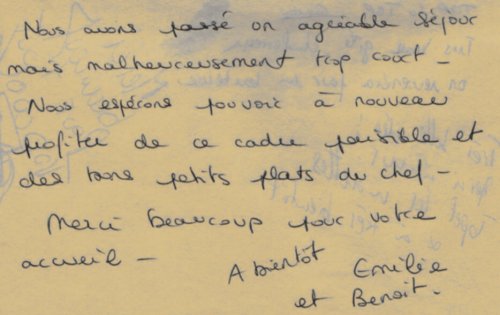 Nous avons passé un agréable séjour
mais malheureusement trop court -
Nous espérons pouvoir à nouveau
profiter de ce cadre paisible et
des bons petits plats du chef -
Merci beaucoup pour votre
accueil -
A bientôt Emilie
et Benoit.